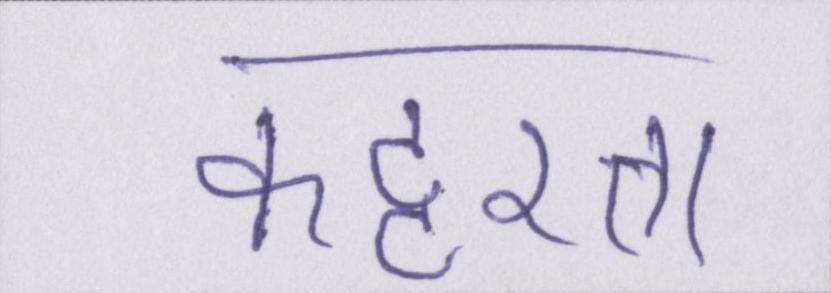 कट्टरता